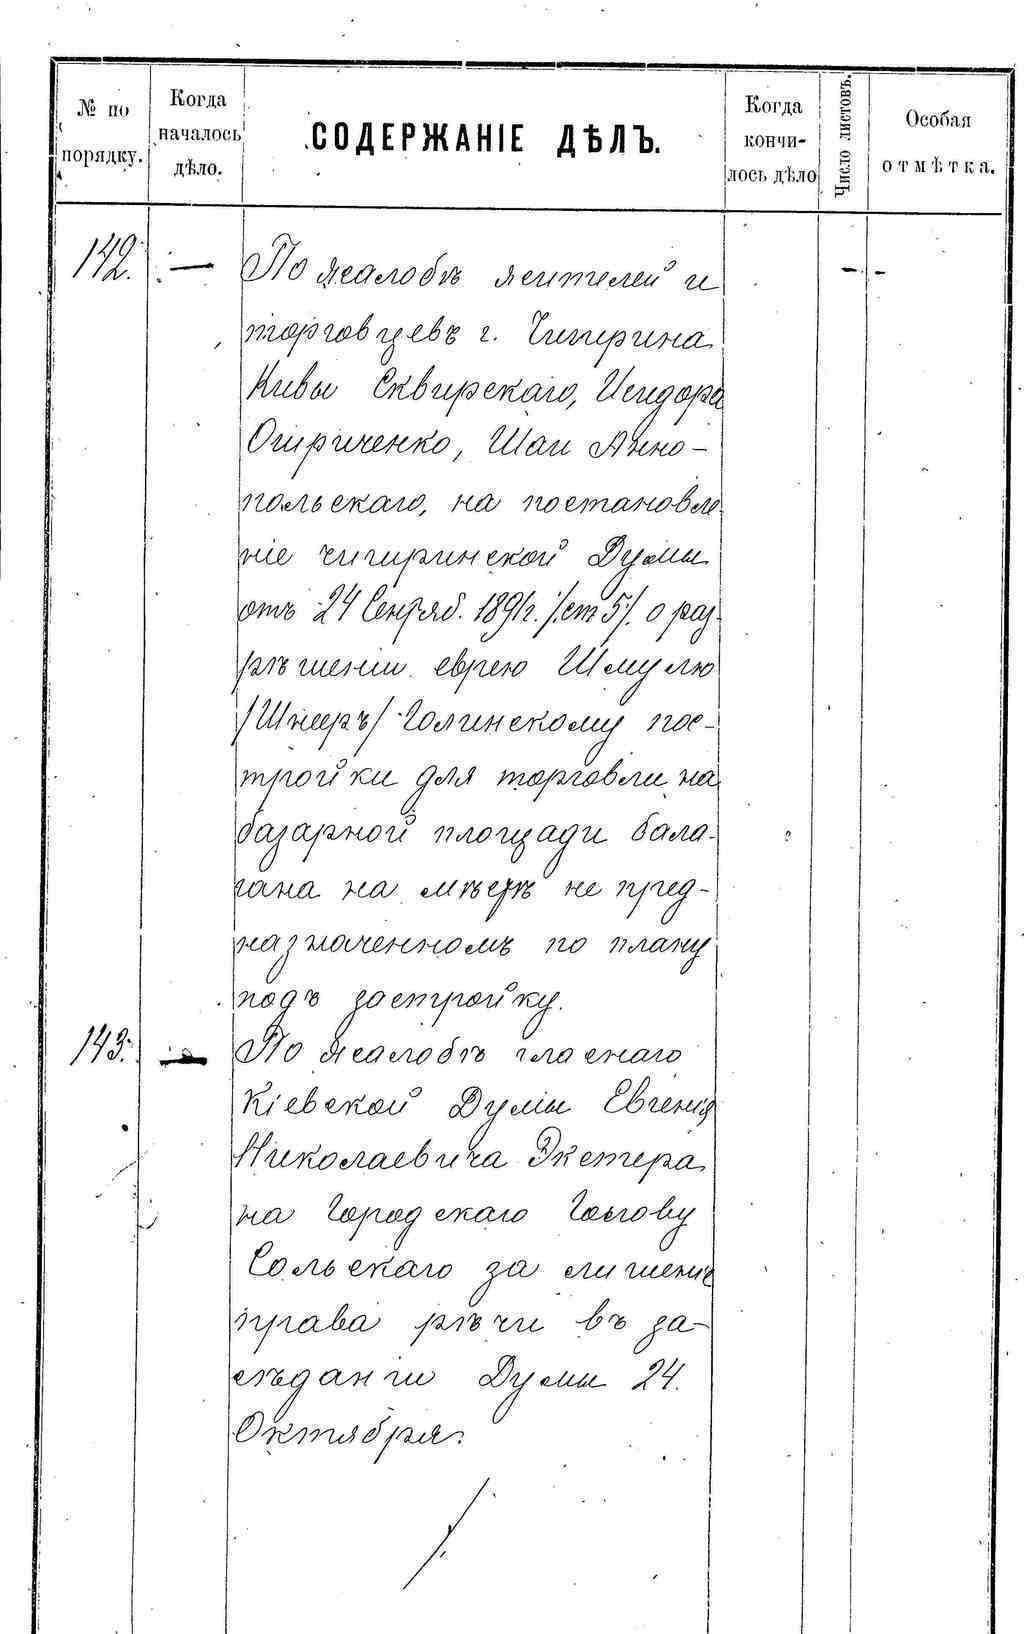 № по порядку.
Когда началось дѣло.
СОДЕРЖАНІЕ ДѢЛЪ.
Когда кончи-лось дѣло
Число листовъ.
Особая отмѣтка.
142. — По жалобѣ жителей и — -
торговцевъ г. Чигирина
Кивы Сквирскаго, Исидора
Огириченко, Шаи Анно-
польскаго, на постановле-
ніе чигиринской Думы
отъ 24 Сентяб. 1891г. /ст 5/. о раз-
рѣшеніи еврею Шмулю
/Шнееръ/ Голинскому пос-
тройки для торговли на
базарной площади бала-
гана на мѣстѣ не пред-
назначенномъ по плану
подъ застройку.
143. — По жалобѣ гласнаго
Кіевской Думы Евгенія
Николаевича Экстера
на Городскаго Голову
Сольскаго за лишеніе
права рѣчи въ за-
сѣданіи Думы 24.
Октября.